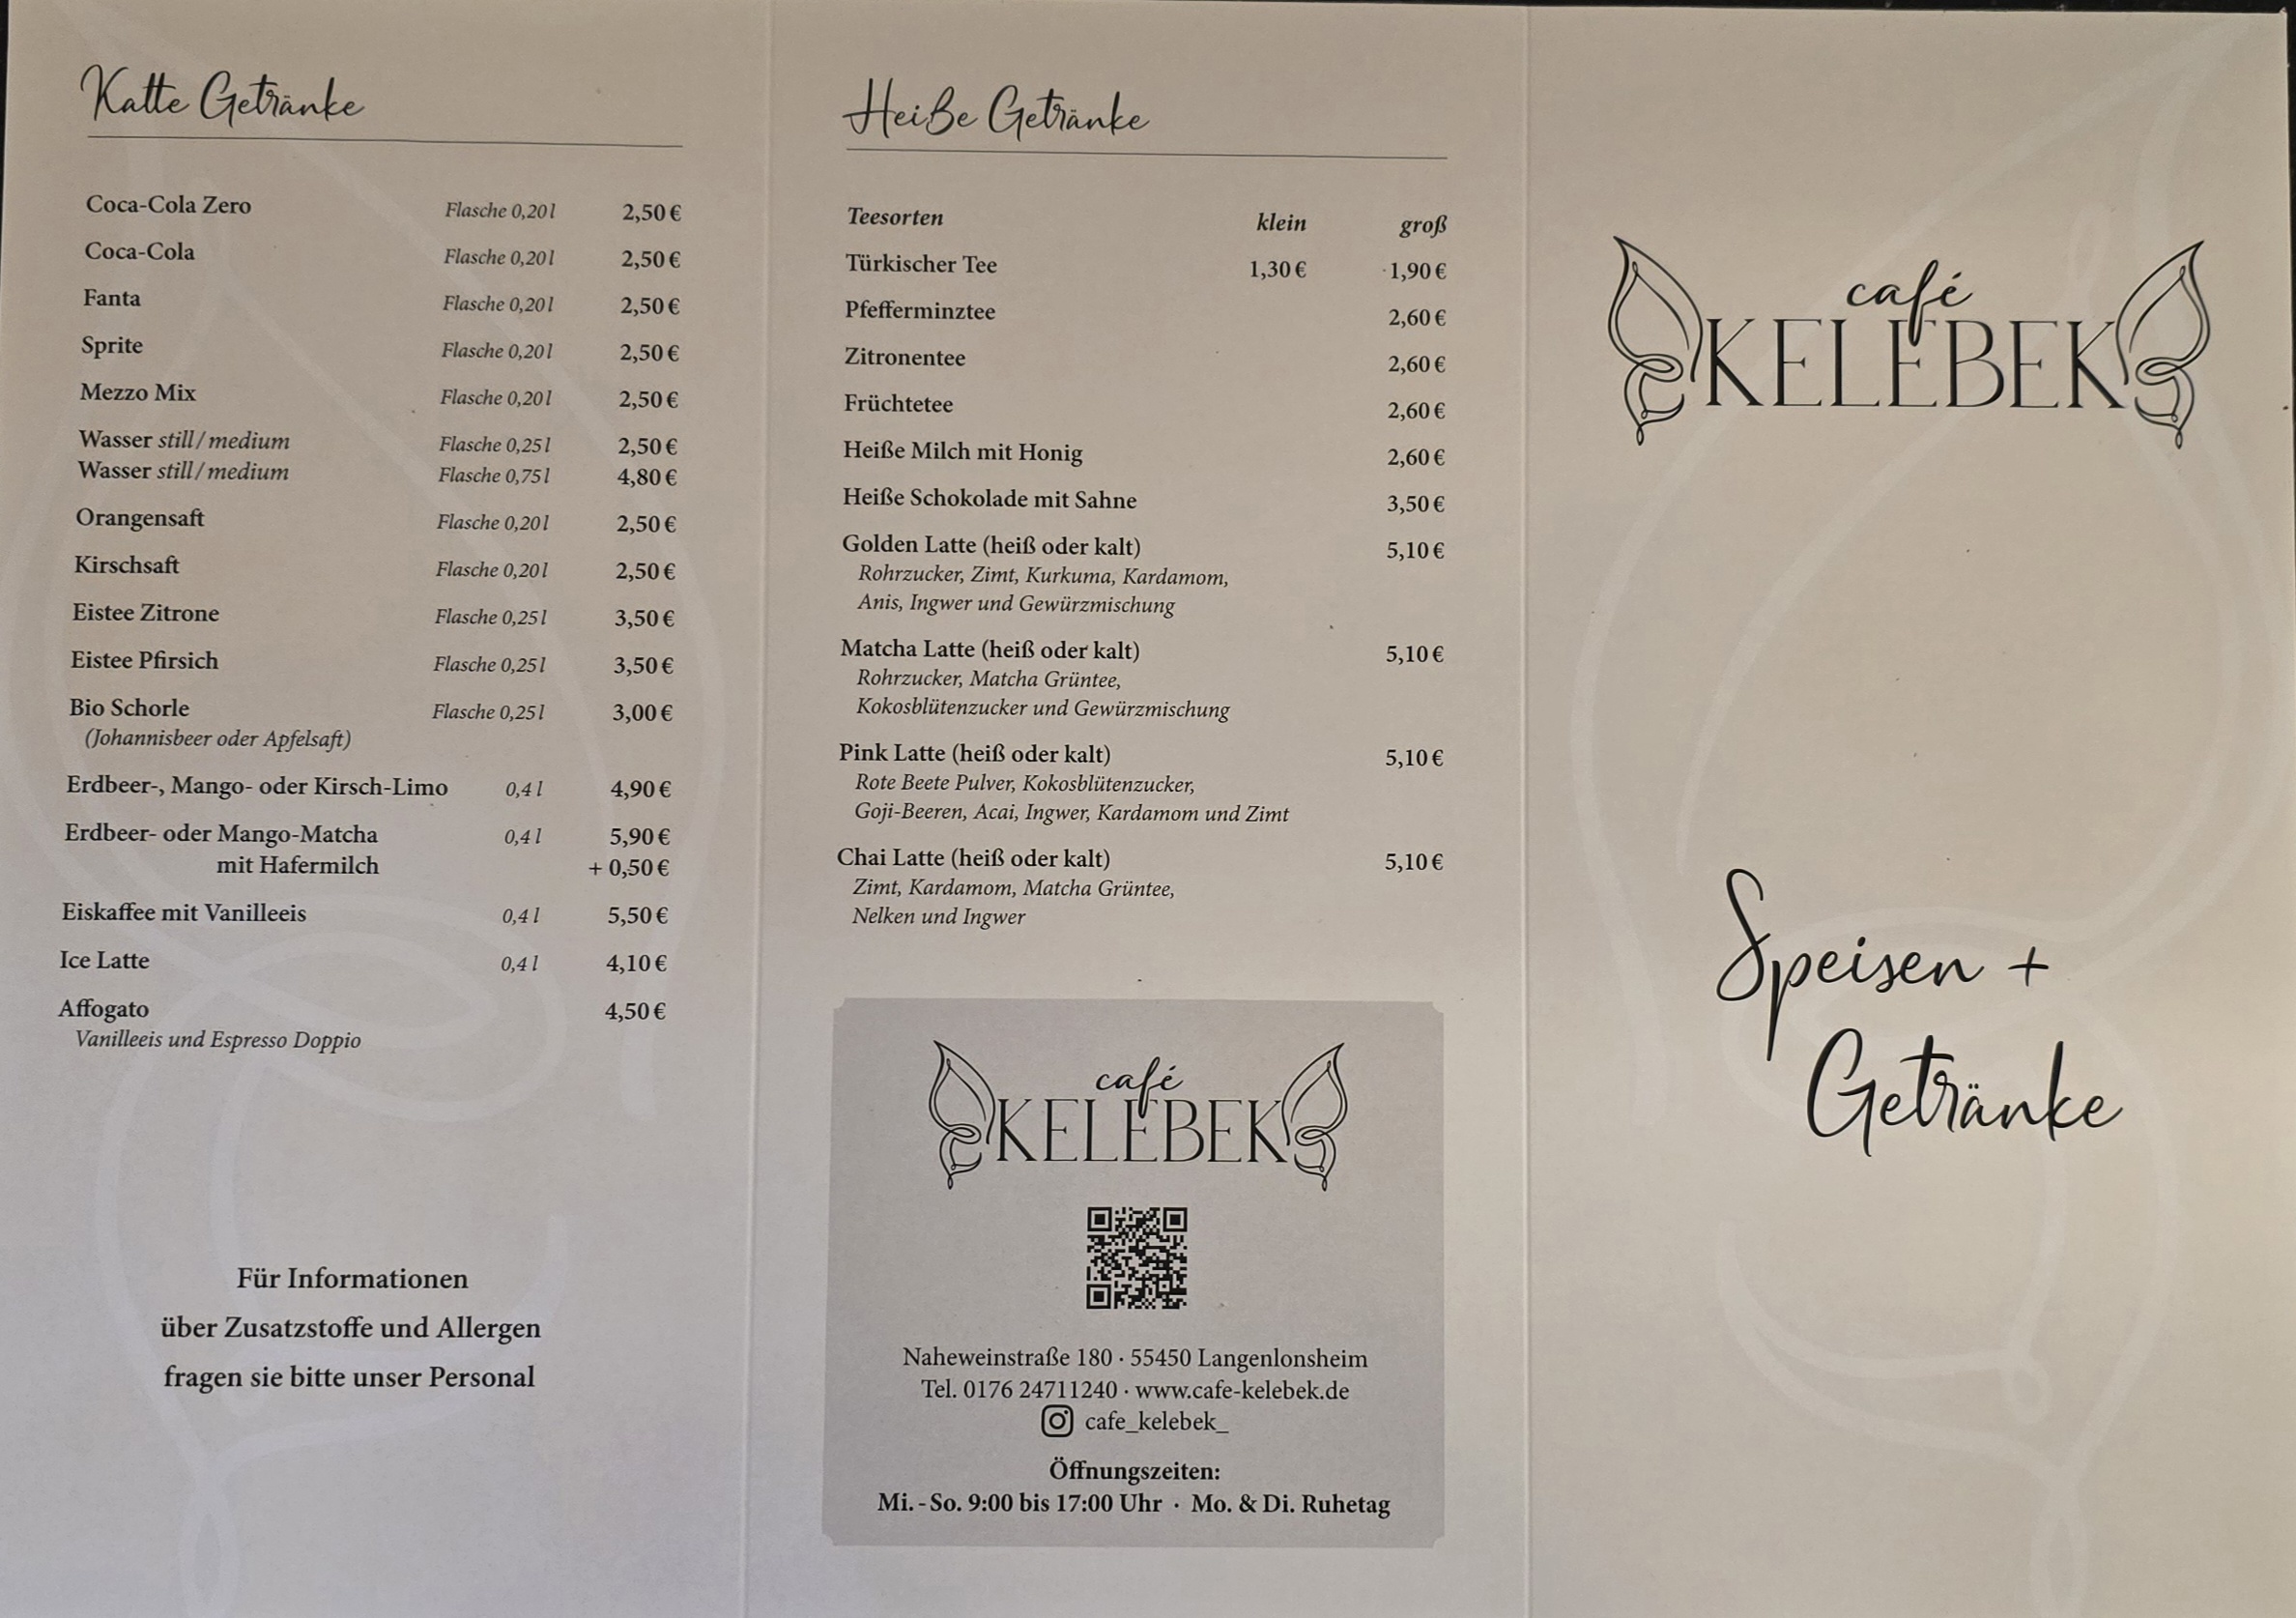 Kalte Getränke
Coca-Cola Zero Flasche 0,20 l 2,50 €
Coca-Cola Flasche 0,20 l 2,50 €
Fanta Flasche 0,20 l 2,50 €
Sprite Flasche 0,20 l 2,50 €
Mezzo Mix Flasche 0,20 l 2,50 €
Wasser still / medium Flasche 0,25 l 2,50 €
Wasser still / medium Flasche 0,75 l 4,80 €
Orangensaft Flasche 0,20 l 2,50 €
Kirschsaft Flasche 0,20 l 2,50 €
Eistee Zitrone Flasche 0,25 l 3,50 €
Eistee Pfirsich Flasche 0,25 l 3,50 €
Bio Schorle Flasche 0,25 l 3,00 €
(Johannisbeer oder Apfelsaft)
Erdbeer-, Mango- oder Kirsch-Limo 0,4 l 4,90 €
Erdbeer- oder Mango-Matcha 0,4 l 5,90 €
mit Hafermilch + 0,50 €
Eiskaffee mit Vanilleeis 0,4 l 5,50 €
Ice Latte 0,4 l 4,10 €
Affogato 4,50 €
Vanilleeis und Espresso Doppio
Für Informationen
über Zusatzstoffe und Allergen
fragen sie bitte unser Personal
Heiße Getränke
Teesorten klein groß
Türkischer Tee 1,30 € 1,90 €
Pfefferminztee 2,60 €
Zitronentee 2,60 €
Früchtetee 2,60 €
Heiße Milch mit Honig 2,60 €
Heiße Schokolade mit Sahne 3,50 €
Golden Latte (heiß oder kalt) 5,10 €
Rohrzucker, Zimt, Kurkuma, Kardamom,
Anis, Ingwer und Gewürzmischung
Matcha Latte (heiß oder kalt) 5,10 €
Rohrzucker, Matcha Grüntee,
Kokosblütenzucker und Gewürzmischung
Pink Latte (heiß oder kalt) 5,10 €
Rote Beete Pulver, Kokosblütenzucker,
Goji-Beeren, Acai, Ingwer, Kardamom und Zimt
Chai Latte (heiß oder kalt) 5,10 €
Zimt, Kardamom, Matcha Grüntee,
Nelken und Ingwer
café
KELEBEK
Naheweinstraße 180 · 55450 Langenlonsheim
Tel. 0176 24711240 · www.cafe-kelebek.de
cafe_kelebek_
Öffnungszeiten:
Mi. - So. 9:00 bis 17:00 Uhr · Mo. & Di. Ruhetag
café
KELEBEK
Speisen +
Getränke